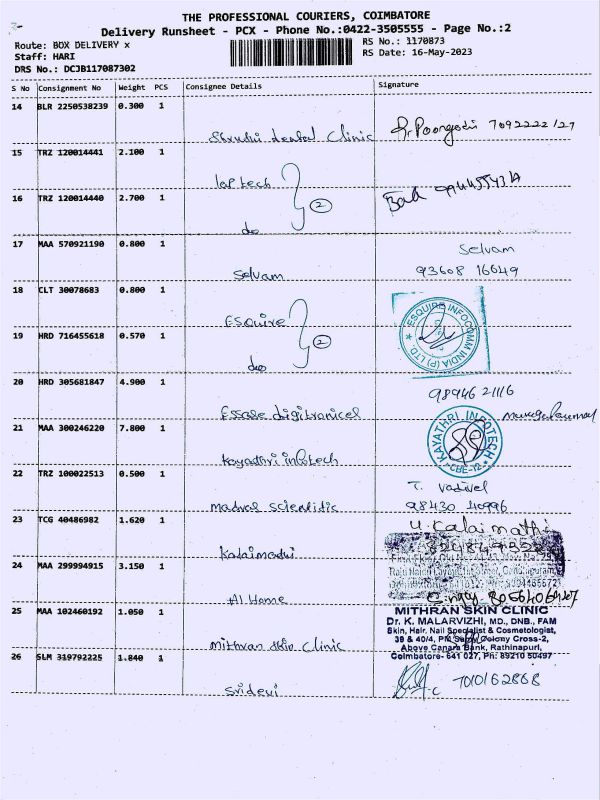 THE PROFESSIONAL COURIERS, COIMBATORE
Delivery Runsheet - PCX - Phone No.:0422-3505555 - Page No.:2
Route: BOX DELIVERY x
RS No.: 1170873
Staff: HARI
RS Date: 16-May-2023
DRS No.: DCJB117087302
S No Consignment No Weight PCS Consignee Details Signature
14 BLR 2250538239 0.300 1
Shruthi dental Clinic
15 TRZ 120014441 2.100 1
laptech
16 TRZ 120014440 2.700 1
2
do
17 MAA 570921190 0.800 1
Selvam
Selvam 93608 16649
18 CLT 30078683 0.800 1
Esquire
ESQUIRE INFOCOMM INDIA (P) LTD
19 HRD 716455618 0.570 1
2
do
20 HRD 305681847 4.900 1
98946 21116
Essae digitronicel
21 MAA 300246220 7.800 1
KAYATHRI INFOTECH
CBE-12
Kayathri infotech
22 TRZ 100022513 0.500 1
T. Vadivel
madras scientific
98430 40996
23 TCG 40486982 1.620 1
Kalaimathi
24 MAA 299994915 3.150 1
At Home
25 MAA 102460192 1.050 1
MITHRAN SKIN CLINIC
Dr. K. MALARVIZHI, MD., DNB., FAM
Skin, Hair, Nail Specialist & Cosmetologist,
38 & 40/4, PM Samy Colony Cross-2,
Above Canara Bank, Rathinapuri,
Coimbatore- 641 027, Ph: 89210 50497
mithran skin clinic
26 SLM 319792225 1.840 1
Sridevi
7010162868